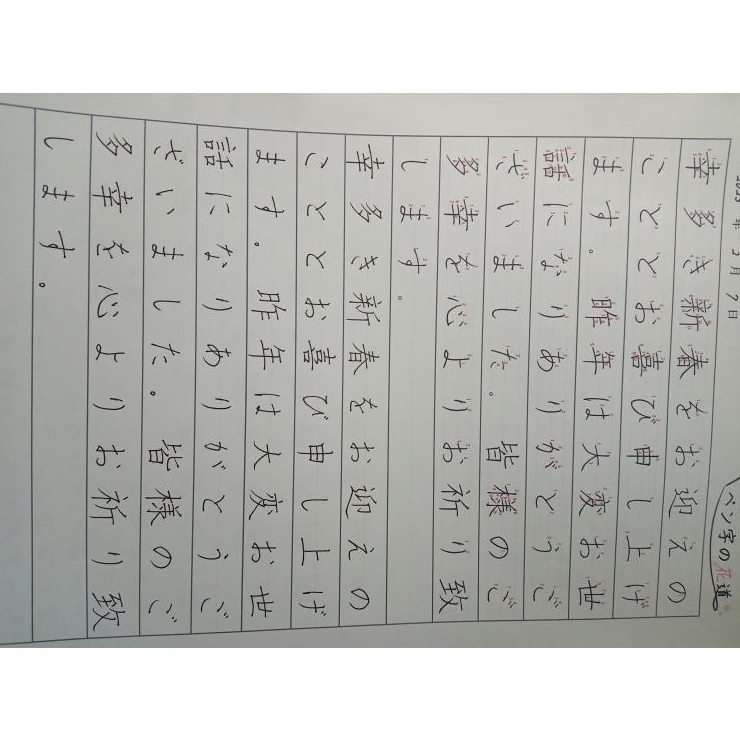 年 月 7日
ペン字の花道
幸多き新春をお迎えの
こととお喜び申し上げ
ます。昨年は大変お世
話になりありがとうご
ざいました。皆様のご
多幸を心よりお祈り致
します。
幸多き新春をお迎えの
こととお喜び申し上げ
ます。昨年は大変お世
話になりありがとうご
ざいました。皆様のご
多幸を心よりお祈り致
します。